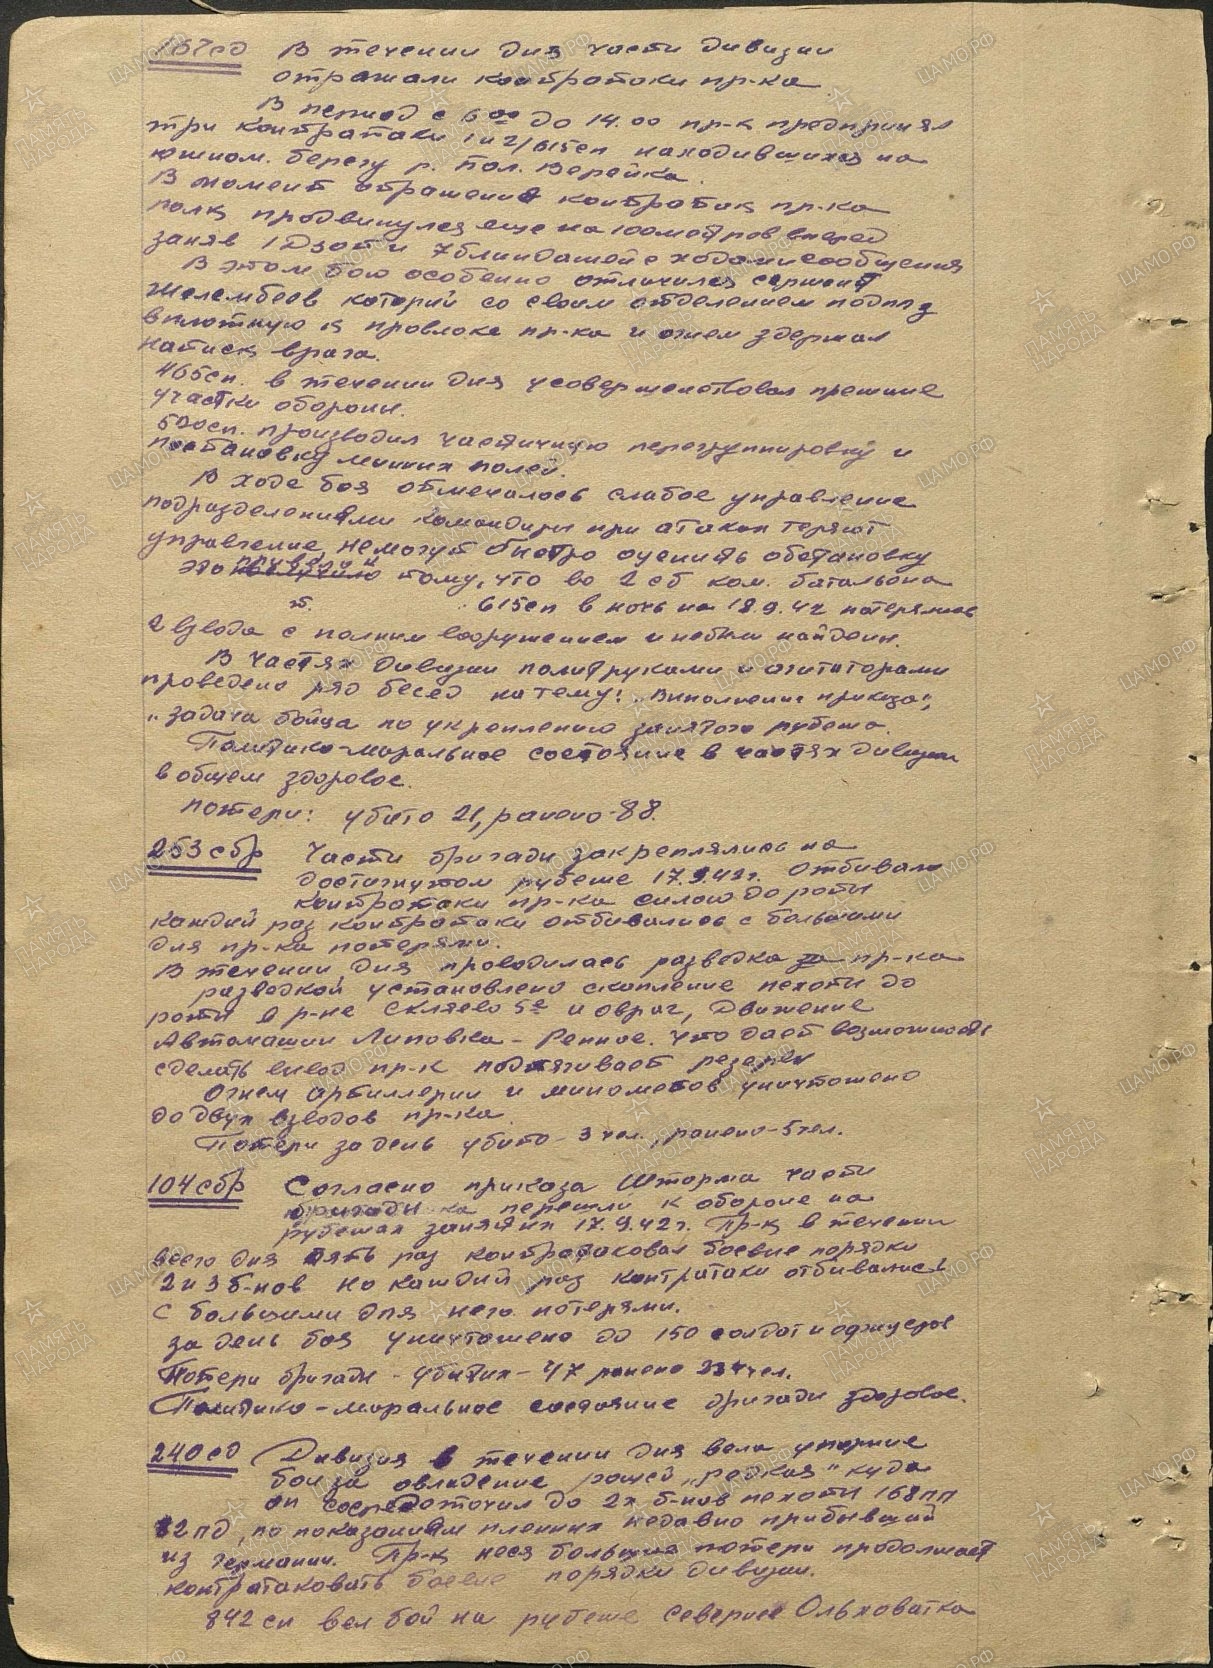 167сд В течении дня части дивизии
отражали контратаки пр-ка
В период с 6 00 до 14.00 пр-к предпринял
три контратаки 1 и 2/615сп находившихся на
южном. берегу р. Пол. Верейка.
В момент отражения контратак пр-ка
полк продвинулся еще на 100 метров вперед
заняв 1 Дзот и 7 блиндажей с ходами сообщения
В этом бою особенно отличился сержант
Желембеев который со своим отделением подполз
вплотную к проволоке пр-ка и огнем здержал
натиск врага.
465сп. в течении дня усовершенствовал прежние
участки обороны.
520сп. производил частичную перегруппировку и
постановку минных полей.
В ходе боя отмечалось слабое управление
подразделениями командиры при атаках теряют
управление, немогут быстро оценить обстановку
это тому, что во 2 сб ком. батальона
615сп в ночь на 18.9.42 потерялись
2 взвода с полным вооружением и небыли найдены.
В частях дивизии политруками и агитаторами
проведено ряд бесед на тему: „Выполнение приказа",
„Задача бойца по укреплению занятого рубежа.
Политико-моральное состояние в частях дивизии
в общем здоровое.
Потери: убито 21, ранено-88.
253сбр Части бригады закреплялись на
достигнутом рубеже 17.9.42г. Отбивали
контратаки пр-ка силою до роты
каждый раз контратаки отбивались с большими
для пр-ка потерями.
В течении дня проводилась разведка за пр-ка
разведкой установлено скопление пехоты до
роты в р-не Скляево 5е и овраг, движение
Автомашин Липовка - Репное. что дает возможность
сделать вывод пр-к подтягивает резервы
Огнем артиллерии и минометов уничтожено
до двух взводов пр-ка
Потери за день убито - 3 чел., ранено - 5 чел.
104сбр Согласно приказа Шторма части
бригады перешли к обороне на
рубежах занятых 17.9.42г. Пр-к в течении
всего дня пять раз контратаковал боевые порядки
2 и 3 б-нов но каждый раз контратаки отбивались
с большими для него потерями.
за день боя уничтожено до 150 солдат и офицеров
Потери бригады - убитых - 47 ранено 234 чел.
Политико-моральное состояние бригады здоровое.
240сд Дивизия в течении дня вела упорные
бои за овладение рощей „редкая" куда
он сосредоточил до 2х б-нов пехоты 168пп
82пд, по показаниям пленных недавно прибывший
из германии. Пр-к неся большие потери продолжает
контратаковать боевые порядки дивизии.
842сп вел бой на рубеже севернее Ольховатка